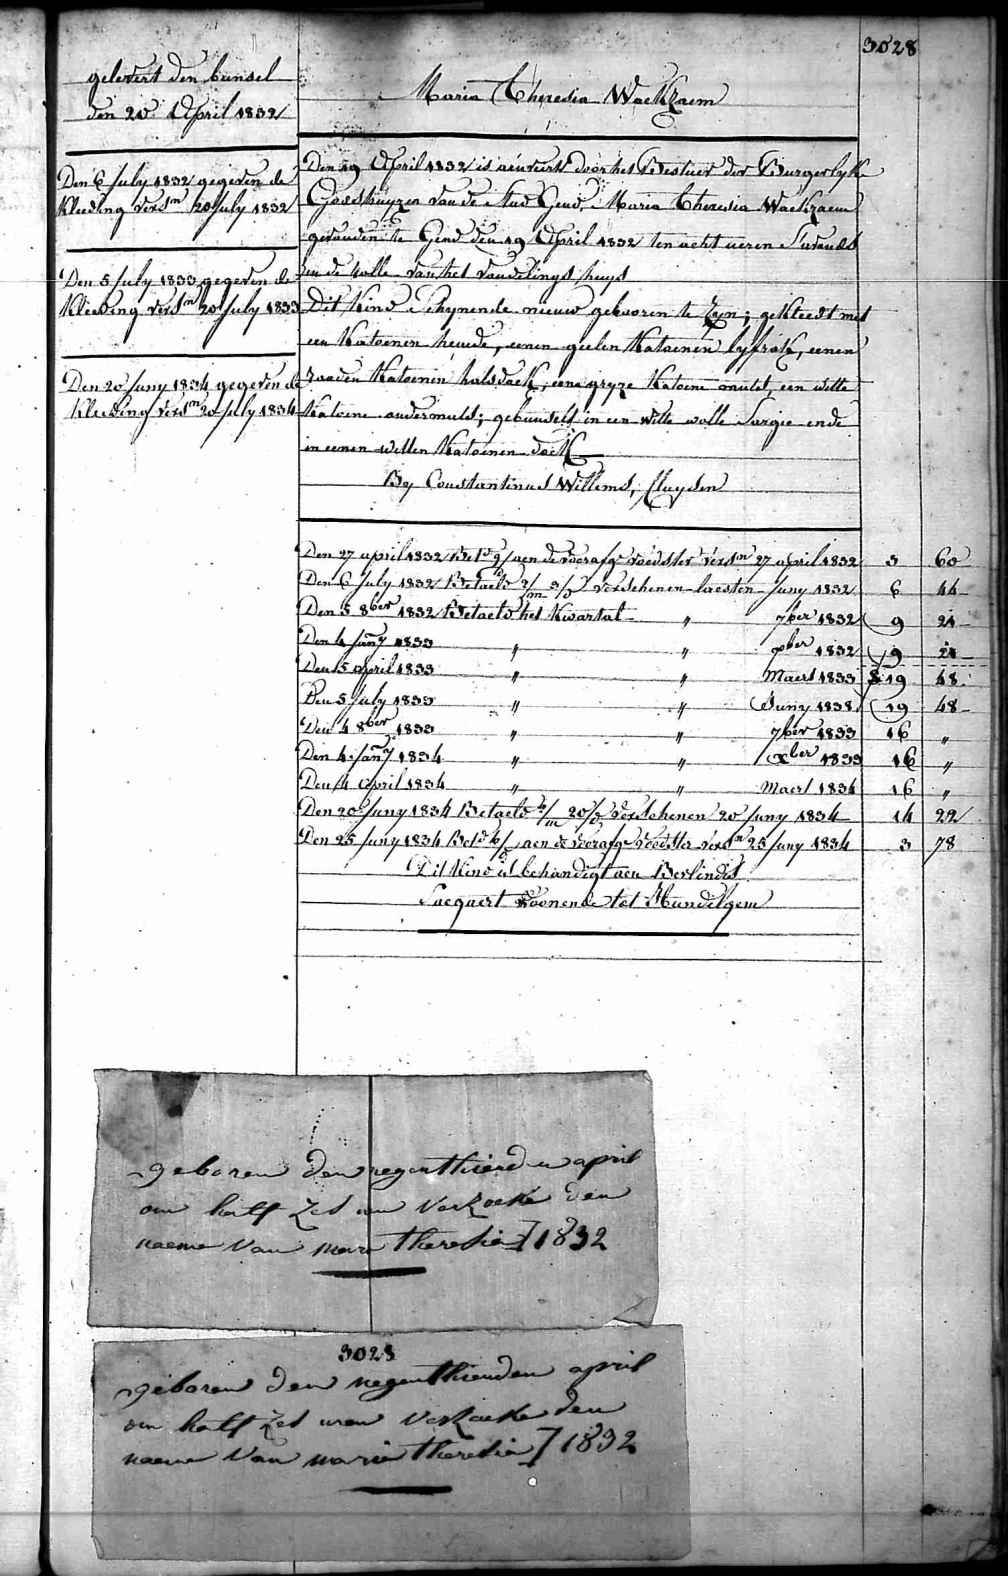 3028
gelevert den bunsel
den 20 April 1832
Den 6 July 1832 gegeven de
Kleeding versn 20 July 1832
Den 5 July 1833 gegeven de
Kleeding versn 20 July 1833
Den 20 Juny 1834 gegeven de
Kleeding versn 20 July 1834
Maria Theresia Waekzaem
Den 19 April 1832 is aenveird door het Bestuer der Burgerlyke
Godshuyzen van de Stad Gend, Maria Theresia Waekzaem
gevonden te Gend den 19 April 1832 ten acht ueren S'avonds
in de rolle van het Vondelings huys
Dit Kind Schynende nieuw gebooren te Zyn; gekleedt met
een Katoenen hemde, eenen geelen Katoenen lyfrok, eenen
rooden Katoenen halsdoek, eene gryze Katoene muts, een witte
Katoene ondermuts; gebunselt in een witte wolle Sargie ende
in eenen witten Katoenen doek
By Constantinus Willems, Cluysen
Den 27 april 1832 Betd aen de voorafge voedster versn 27 april 1832 3 60
Den 6 July 1832 Betaeld 2/m 3/d verschenen laesten Juny 1832 6 44
Den 5 8ber 1832 Betaeld het Kwartal " 7ber 1832 9 24
Den 4 Jany 1833 " " xber 1832 9 24
Den 5 april 1833 " " Maert 1833 19 48
Den 5 July 1833 " " Juny 1833 19 48
Den 4 8ber 1833 " " 7ber 1833 16 "
Den 4 Jany 1834 " " xber 1833 16 "
Den 4 April 1834 " " Maert 1834 16 "
Den 20 Juny 1834 Betaeld 2/m 20/d verschenen 20 Juny 1834 14 22
Den 25 Juny 1834 Betd aen de voorafge voedster versn 25 Juny 1834 3 78
Dit Kind is behandigt aen Berlindis
woonende tot Hundelgem
geboren den negenthienden april
om half Zes uren Verzoeke den
naeme Van maria theresia] 1832
3028
geboren den negenthienden april
om half Zes uren Verzoeke den
naeme Van maria theresia] 1832